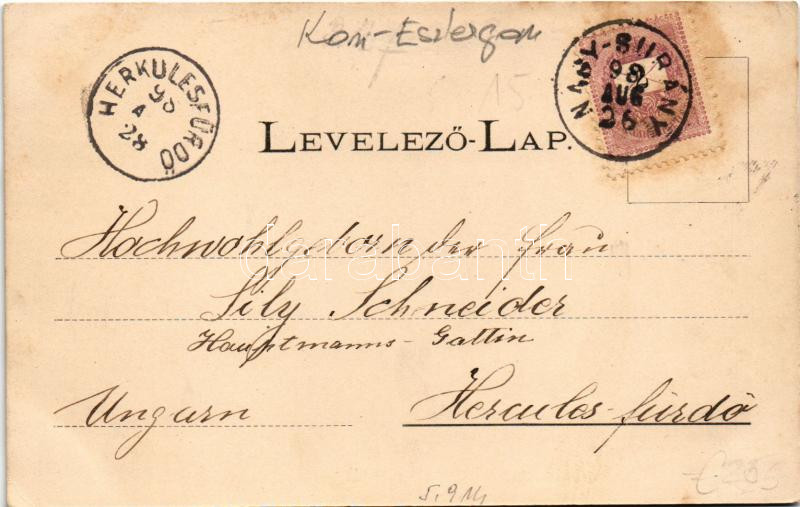 Kom-Esztergom
15
HERKULESFÜRDŐ
98
A
28
NAGY-SURÁNY
98
AUG
26
LEVELEZŐ-LAP.
Hochwohlgeborn der Frau
Lily Schneider
Hauptmanns-Gattin
Ungarn
Hercules-fürdő
darabanth
5.914